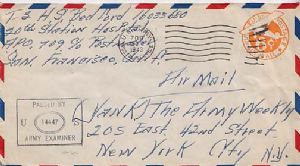 T/5 H. S. Bedford 16033660
20th Station Hospital
APO, 709 % Postmaster
San, Francisco, Calif.
Air Mail
PASSED BY
U 14447 S
ARMY EXAMINER
Yank, The Army Weekly
205 East, 42nd Street
New York City N.Y.